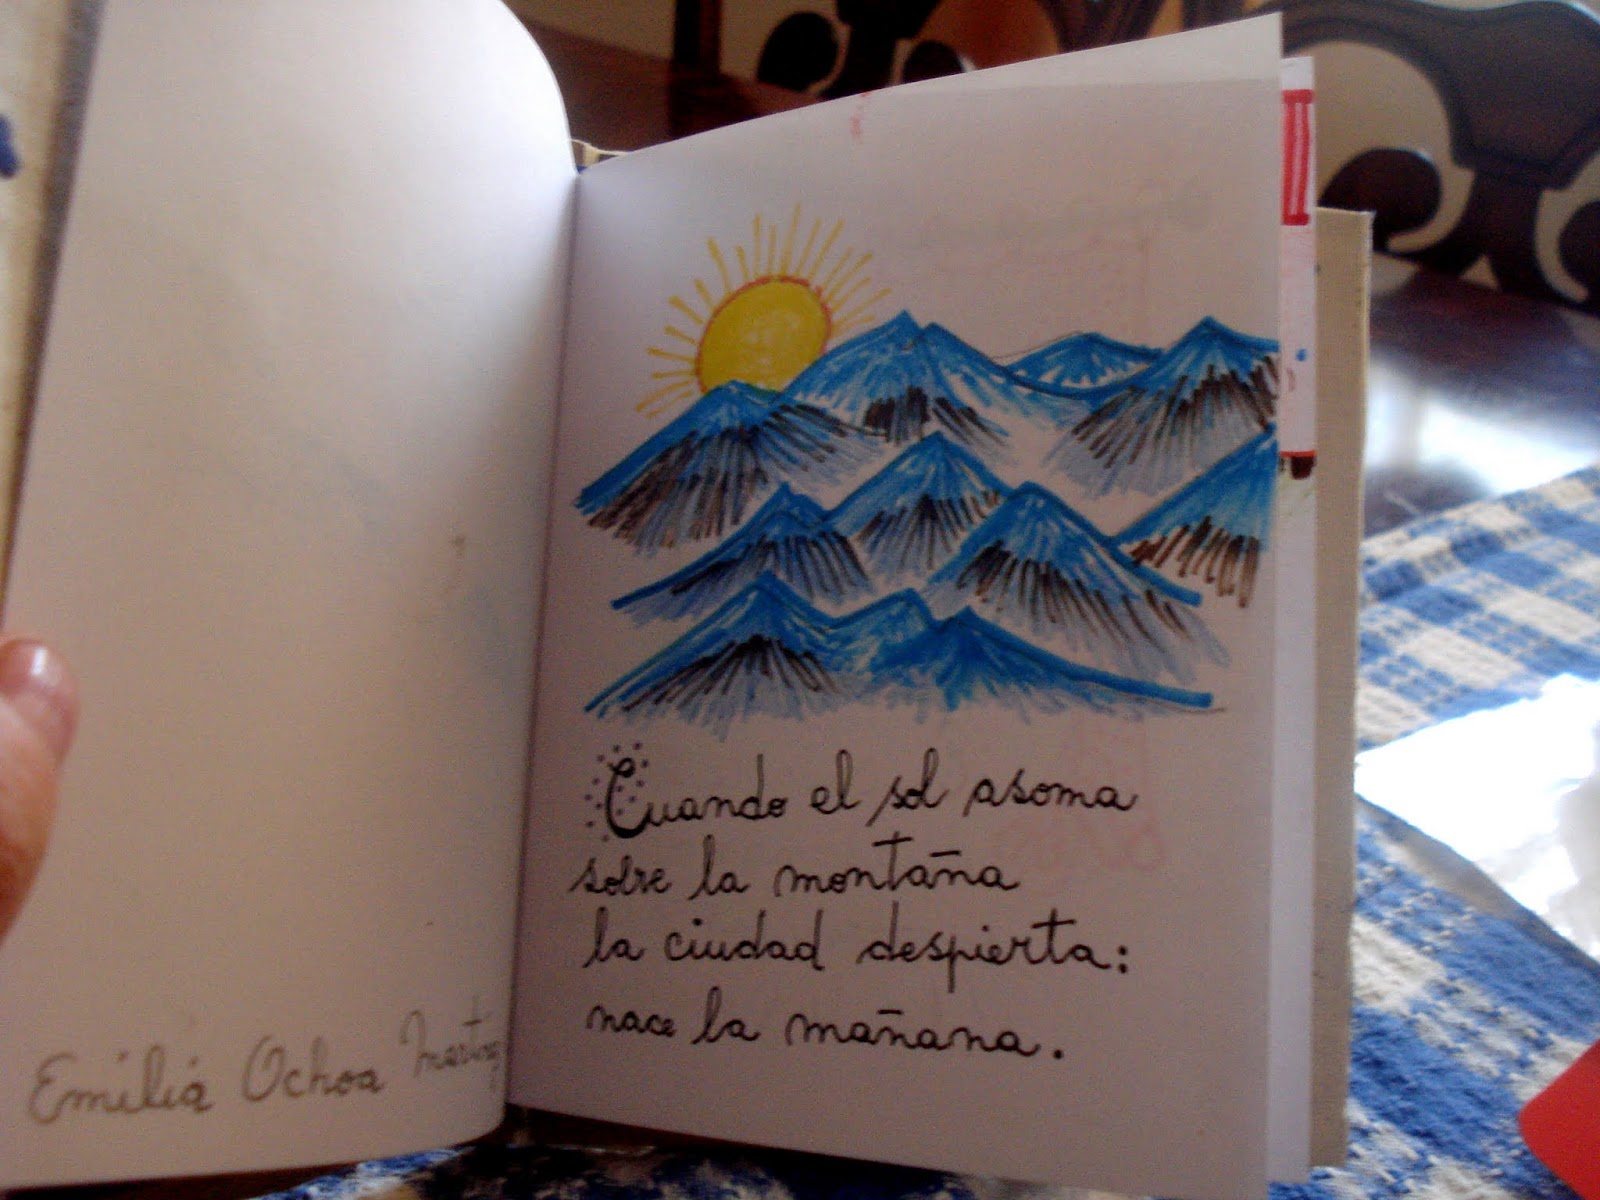 Emilia Ochoa
Cuando el sol asoma
sobre la montaña
la ciudad despierta:
nace la mañana.